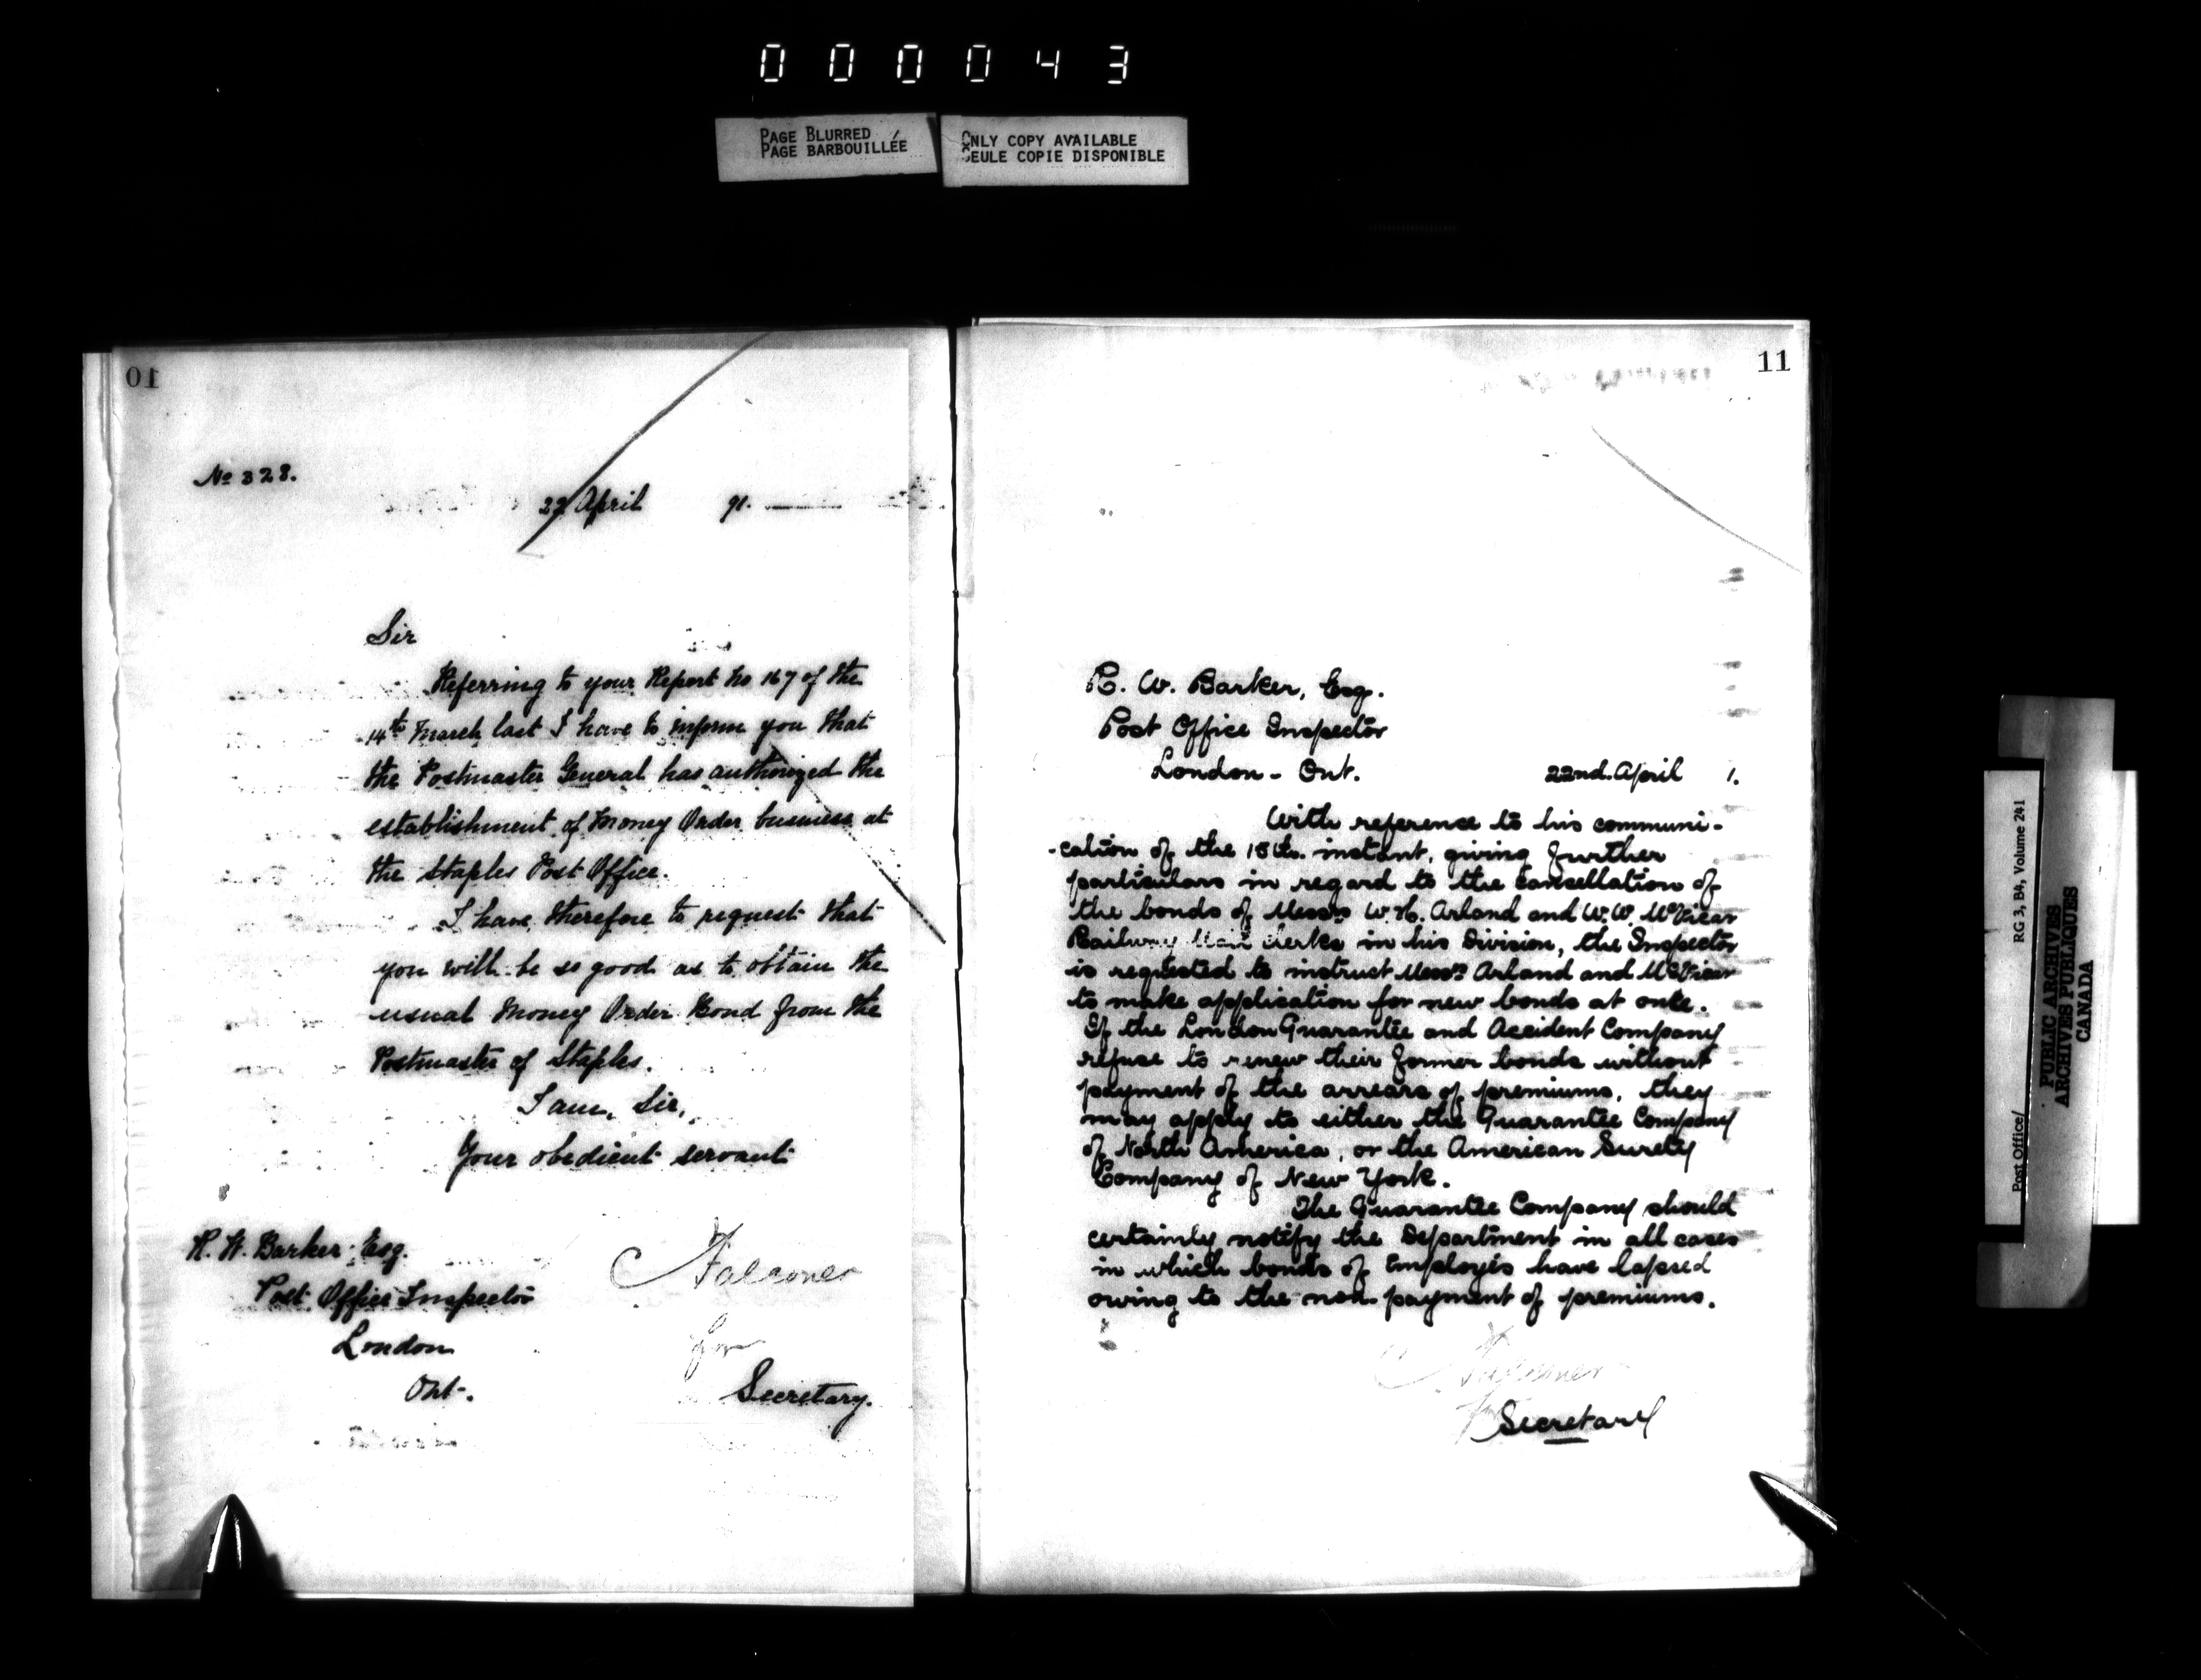 000043
PAGE BLURRED
PAGE BARBOUILLÉE
ONLY COPY AVAILABLE
SEULE COPIE DISPONIBLE
10
No 328.
22 April 91.
Sir
Referring to your Report No 167 of the
14th March last I have to inform you that
the Postmaster General has authorized the
establishment of Money Order business at
the Staples Post Office.
I have therefore to request that
you will be so good as to obtain the
usual Money Order Bond from the
Postmaster of Staples.
I am, Sir,
Your obedient servant
R. W. Barker Esq.
Post Office Inspector
London
Ont.
Falconer
for
Secretary.
11
R. W. Barker, Esq.
Post Office Inspector
London - Ont.
22nd. April 1.
With reference to his communi-
-cation of the 18th. instant, giving further
particulars in regard to the cancellation of
the bonds of Messrs W. H. Arland and W. W. McVicar
Railway Mail Clerks in his Division, the Inspector
is requested to instruct Messrs Arland and McVicar
to make application for new bonds at once.
If the London Guarantee and Accident Company
refuse to renew their former bonds without
payment of the arrears of premiums, they
may apply to either the Guarantee Company
of North America, or the American Surety
Company of New York.
The Guarantee Company should
certainly notify the Department in all cases
in which bonds of Employés have lapsed
owing to the non-payment of premiums.
Falconer
for
Secretary
Post Office/ RG 3, B4, Volume 241
PUBLIC ARCHIVES
ARCHIVES PUBLIQUES
CANADA